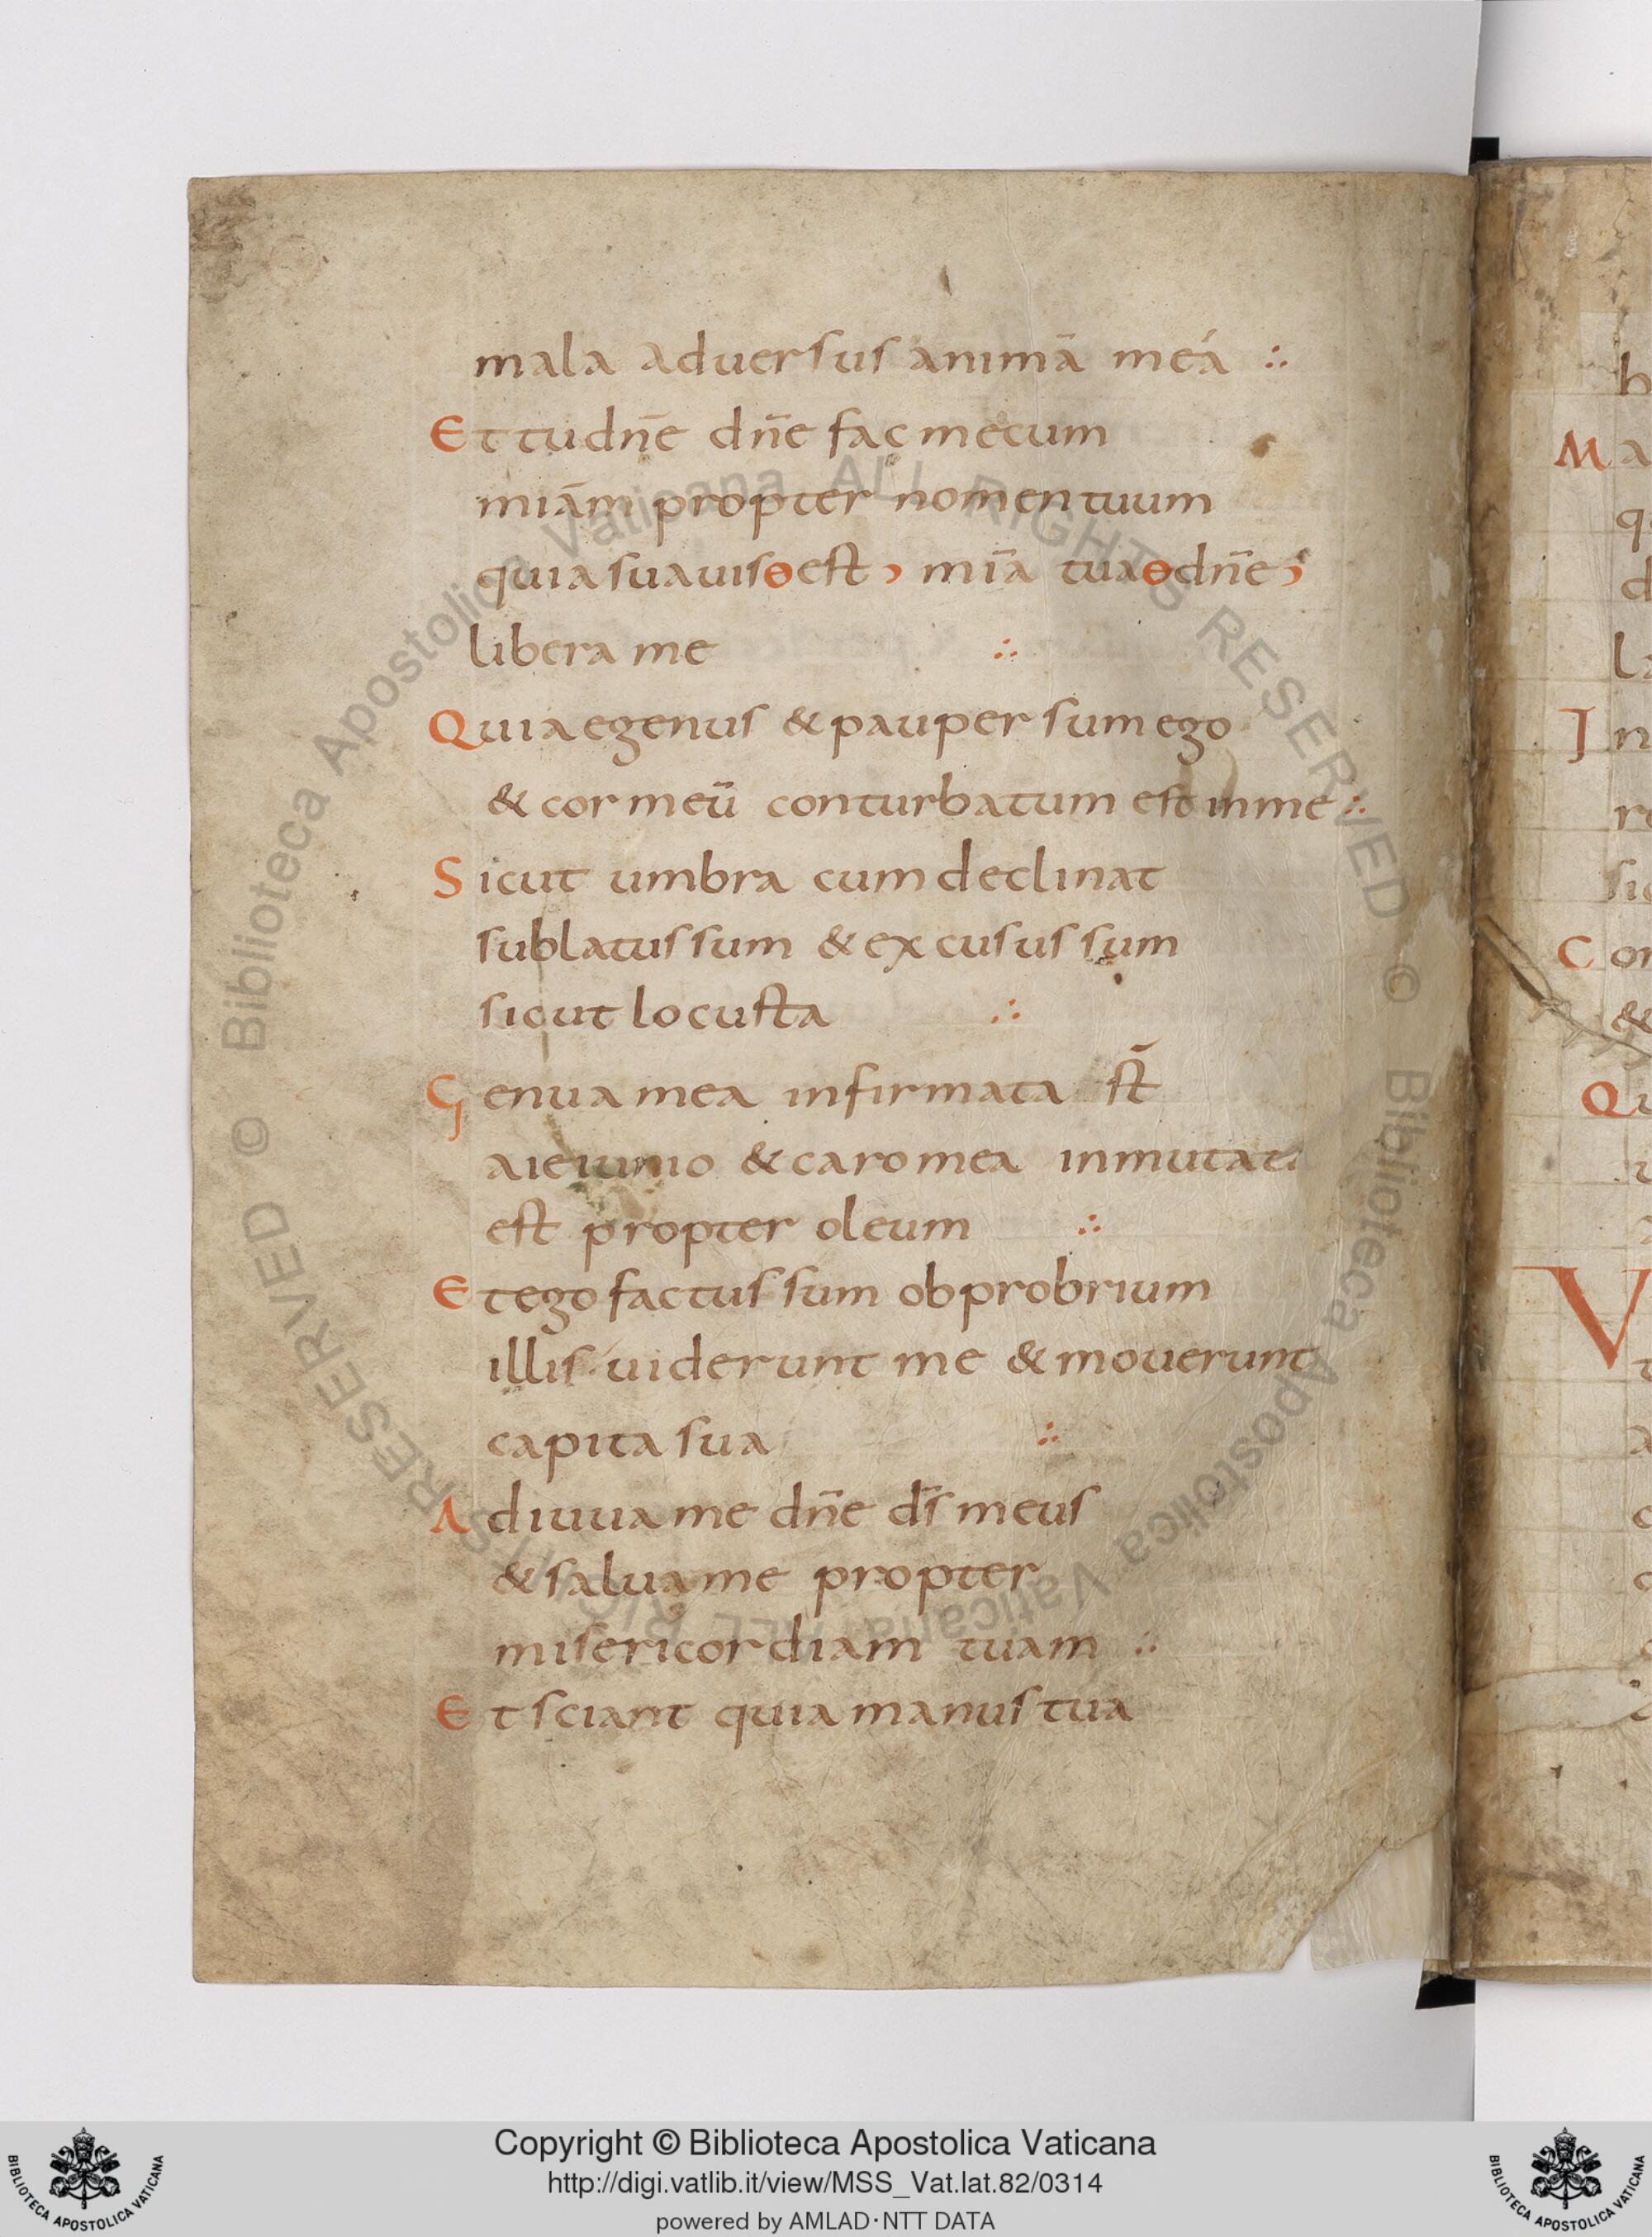 mala aduersus animā meá ∴
Et tu dn̄e dn̄e fac mecum
miām propter nomen tuum
quia suauis ɵ est, mīa tua ɵ dn̄e,
libera me ∴
Quia egenus & pauper sum ego
& cor meū conturbatum est in me ∴
Sicut umbra cum declinat
sublatus sum & excusus sum
sicut locusta ∴
Genua mea infirmata st̄
a ieiunio & caro mea inmutata
est propter oleum ∴
Et ego factus sum obprobrium
illis uiderunt me & mouerunt
capita sua ∴
Adiuua me dn̄e ds̄ meus
& salua me propter
misericordiam tuam ∴
Et sciant quia manus tua
M
J
C
&
Q
V
Copyright © Biblioteca Apostolica Vaticana
http://digi.vatlib.it/view/MSS_Vat.lat.82/0314
powered by AMLAD·NTT DATA
BIBLIOTECA APOSTOLICA VATICANA
BIBLIOTECA APOSTOLICA VATICANA
© Biblioteca Apostolica Vaticana ALL RIGHTS RESERVED © Biblioteca Apostolica Vaticana ALL RIGHTS RESERVED